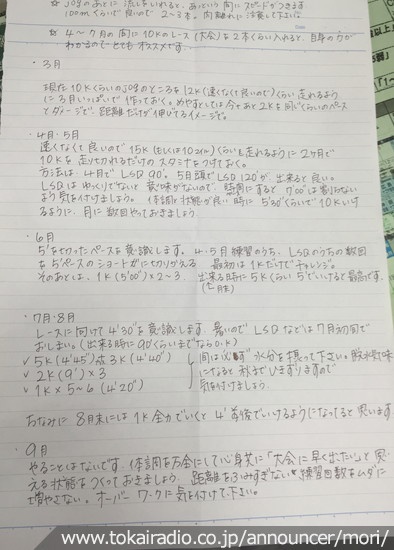 ☆ jogのあとに流しをいれると、あっという間にスピードがつきます
100mくらいで良いので 2〜3本。肉離れに注意して下さい。
☆ 4〜7月の間に10Kのレース(大会)を2本くらい入れると、自身の力が
わかるのでとてもオススメです。
・3月
現在10Kくらいのjogのところを12K(速くなくて良いので)くらい走れるよう
に3月いっぱいで作っておく。めやすとしては今+あと2Kを同じくらいのペース
でとダメージで、距離だけが伸びてるイメージで。
・4月・5月
速くなくて良いので15K(もしくは10マイル)くらいも走れるように2ヶ月で
10Kを走り切れるだけのスタミナをつけておく。
方法は、4月でLSD 90。5月頭でLSD 120'が出来ると良い。
LSDはゆっくりでないと意味がないので、時間にすると7'00"は割らない
よう気を付けましょう。体調と状態が良い時に5'30"くらいで10Kいけ
るように、月に数回やっておきましょう。
・6月
5'を切ったペースを意識します。4・5月練習のうち、LSDのうちの数回
を5'ペースのショートがに切りかえる 最初は1Kだけでチャレンジ。
そのあとは、1K(5'00")×2〜3、出来る時に5Kくらい5'でいけると最高です。
(6月末)
・7月・8月
レースに向けて4'30"を意識します。暑いのでLSDなどは7月初旬で
おしまい。(出来る時に90'くらいまでならO.K)
✓ 5K(4'45")or 3K(4'40")
✓ 2K(9')×3
✓ 1K×5〜6(4'20")
間は必ず水分を摂って下さい。脱水気味
になると秋までひきずりますので
気を付けましょう。
ちなみに8月末には1K全力でいくと4'前後でいけるようになってると思います。
・9月
やることはないです。体調を万全にして心身共に「大会に早く出たい」と思
える状態をつくっておきましょう。距離をふみすぎない 練習回数をムダに
増やさない。オーバーワークに気を付けて下さい。
www.tokairadio.co.jp/announcer/mori/